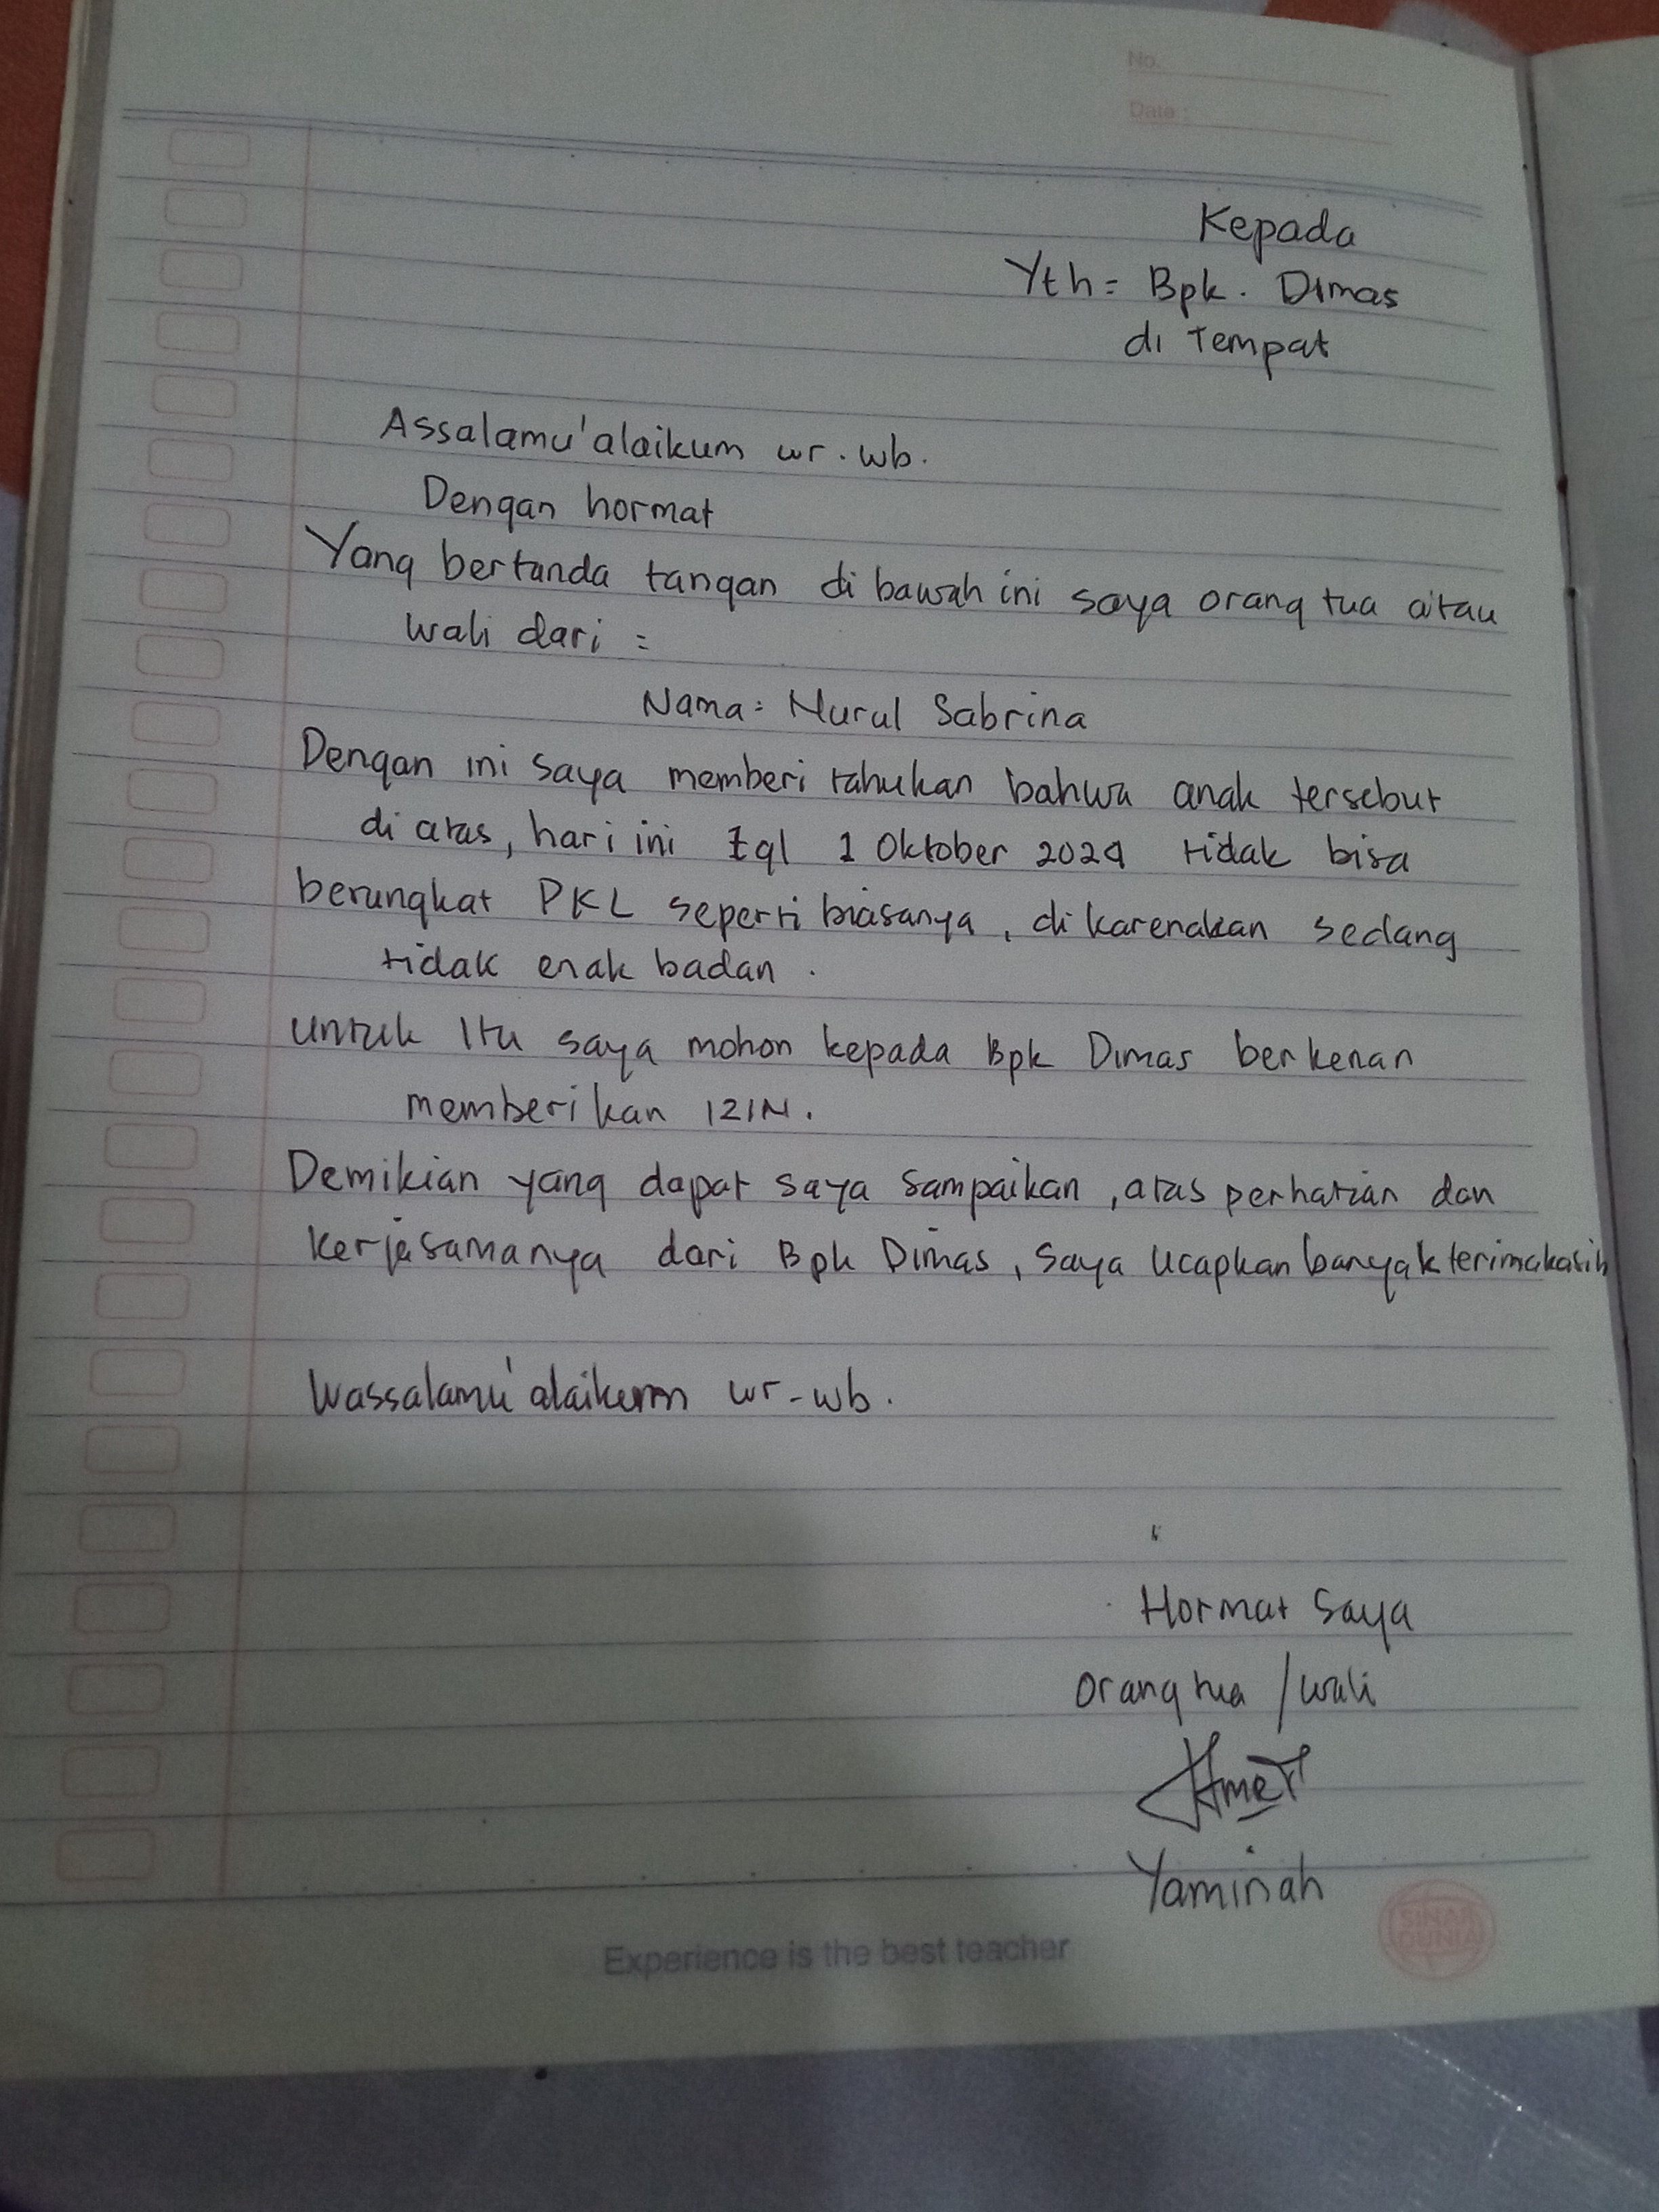 No.
Date :
Kepada
Yth = Bpk. Dimas
di Tempat
Assalamu'alaikum wr. wb.
Dengan hormat
Yang bertanda tangan di bawah ini saya orang tua atau
wali dari =
Nama = Nurul Sabrina
Dengan ini saya memberi tahukan bahwa anak tersebut
di atas, hari ini tgl 1 Oktober 2024 tidak bisa
berangkat PKL seperti biasanya, di karenakan sedang
tidak enak badan .
untuk Itu saya mohon kepada Bpk Dimas berkenan
memberi kan IZIN.
Demikian yang dapat saya sampaikan, atas perhatian dan
kerjasamanya dari Bpk Dimas, saya ucapkan banyak terimakasih
Wassalamu'alaikum wr-wb.
Hormat saya
orang tua / wali
Yaminah
Experience is the best teacher
SINAR
DUNIA